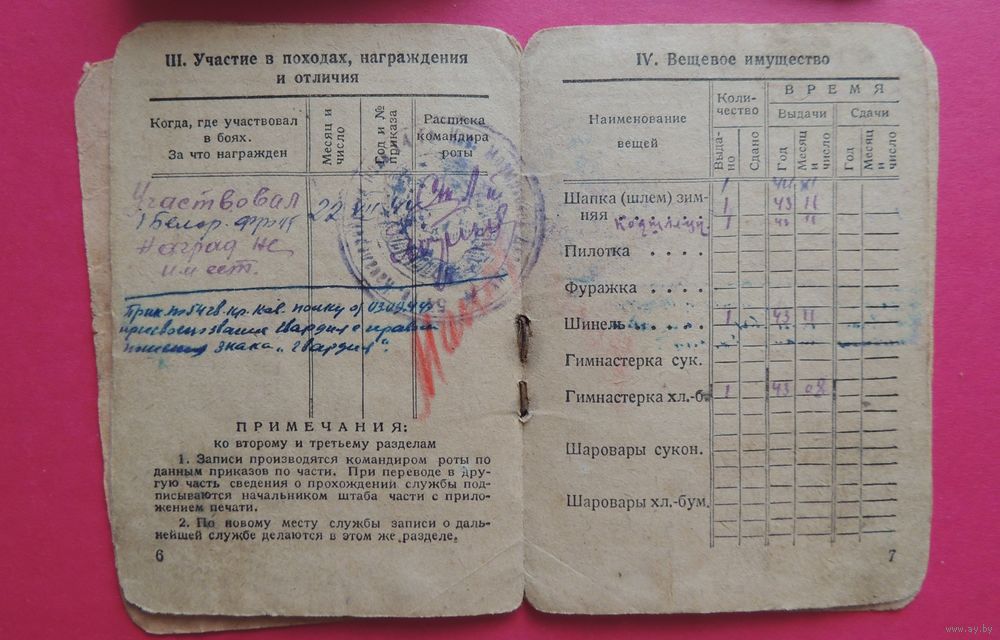 III. Участие в походах, награждения
и отличия
Когда, где участвовал
в боях.
За что награжден
Месяц и
число
Год и №
приказа
Расписка
командира
роты
Участвовал
1 Белор. фрнт
Наград не
имеет.
22 VII 44
03.09.44
присвоено звание Гвардия с
знака „Гвардия“.
ПРИМЕЧАНИЯ:
ко второму и третьему разделам
1. Записи производятся командиром роты по
данным приказов по части. При переводе в дру-
гую часть сведения о прохождений службы под-
писываются начальником штаба части с прило-
жением печати.
2. По новому месту службы записи о даль-
нейшей службе делаются в этом же разделе.
6
IV. Вещевое имущество
Наименование
вещей
Коли-
чество
ВРЕМЯ
Выдачи
Сдачи
Выда-
но
Сдано
Год
Месяц
и
число
Год
Месяц
и
число
1 44 XI
Шапка (шлем) зим- 1 43 11
няя 1 43 11
Пилотка . . . .
Фуражка . . . .
Шинель . . . . 1 43 11
Гимнастерка сук.
Гимнастерка хл.-б. 1 43 08
Шаровары сукон.
Шаровары хл.-бум.
7
www.ay.by